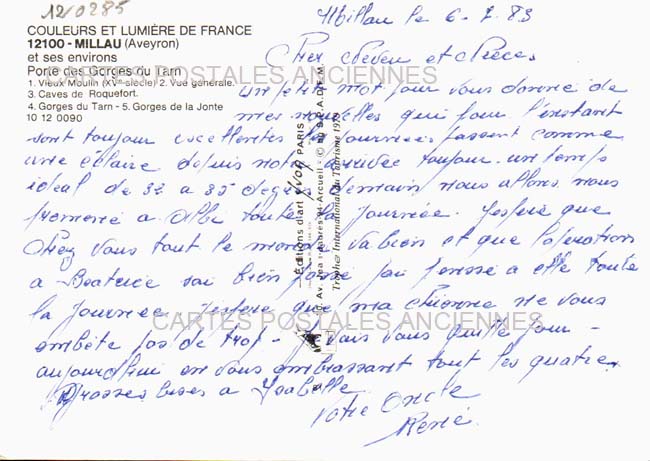 12/0285
COULEURS ET LUMIÈRE DE FRANCE
12100 - MILLAU (Aveyron)
et ses environs
Porte des Gorges du Tarn
1. Vieux Moulin (XVe siècle) 2. Vue générale.
3. Caves de Roquefort.
4. Gorges du Tarn - 5. Gorges de la Jonte
10 12 0090
Millau le 6-7.83
Cher Neveu et Nièces
un petit mot pour vous donné de
mes nouvelles qui pour l'instant
sont toujour excellentes les journées passent comme
une éclaire depuis notre arrivée toujour un temps
idéal de 32 a 35 degrés demain nous allons nous
promené a Albi toute la journée. J'espère que
Chez vous tout le monde va bien et que l'opération
a Beatrice soi bien passé j'ai pensé a elle toute
la journée j'espère que ma chienne ne vous
embête pas de trop - je vais vous quitté pour
aujourd'hui en vous embrassant tout les quatre
Grosses bises a Isabelle
Votre Oncle
René
Editions d'art YVON PARIS
Av. Jean-Jaurès 94-Arcueil
Trophée International du Tourisme
CARTES POSTALES ANCIENNES
CARTES POSTALES ANCIENNES